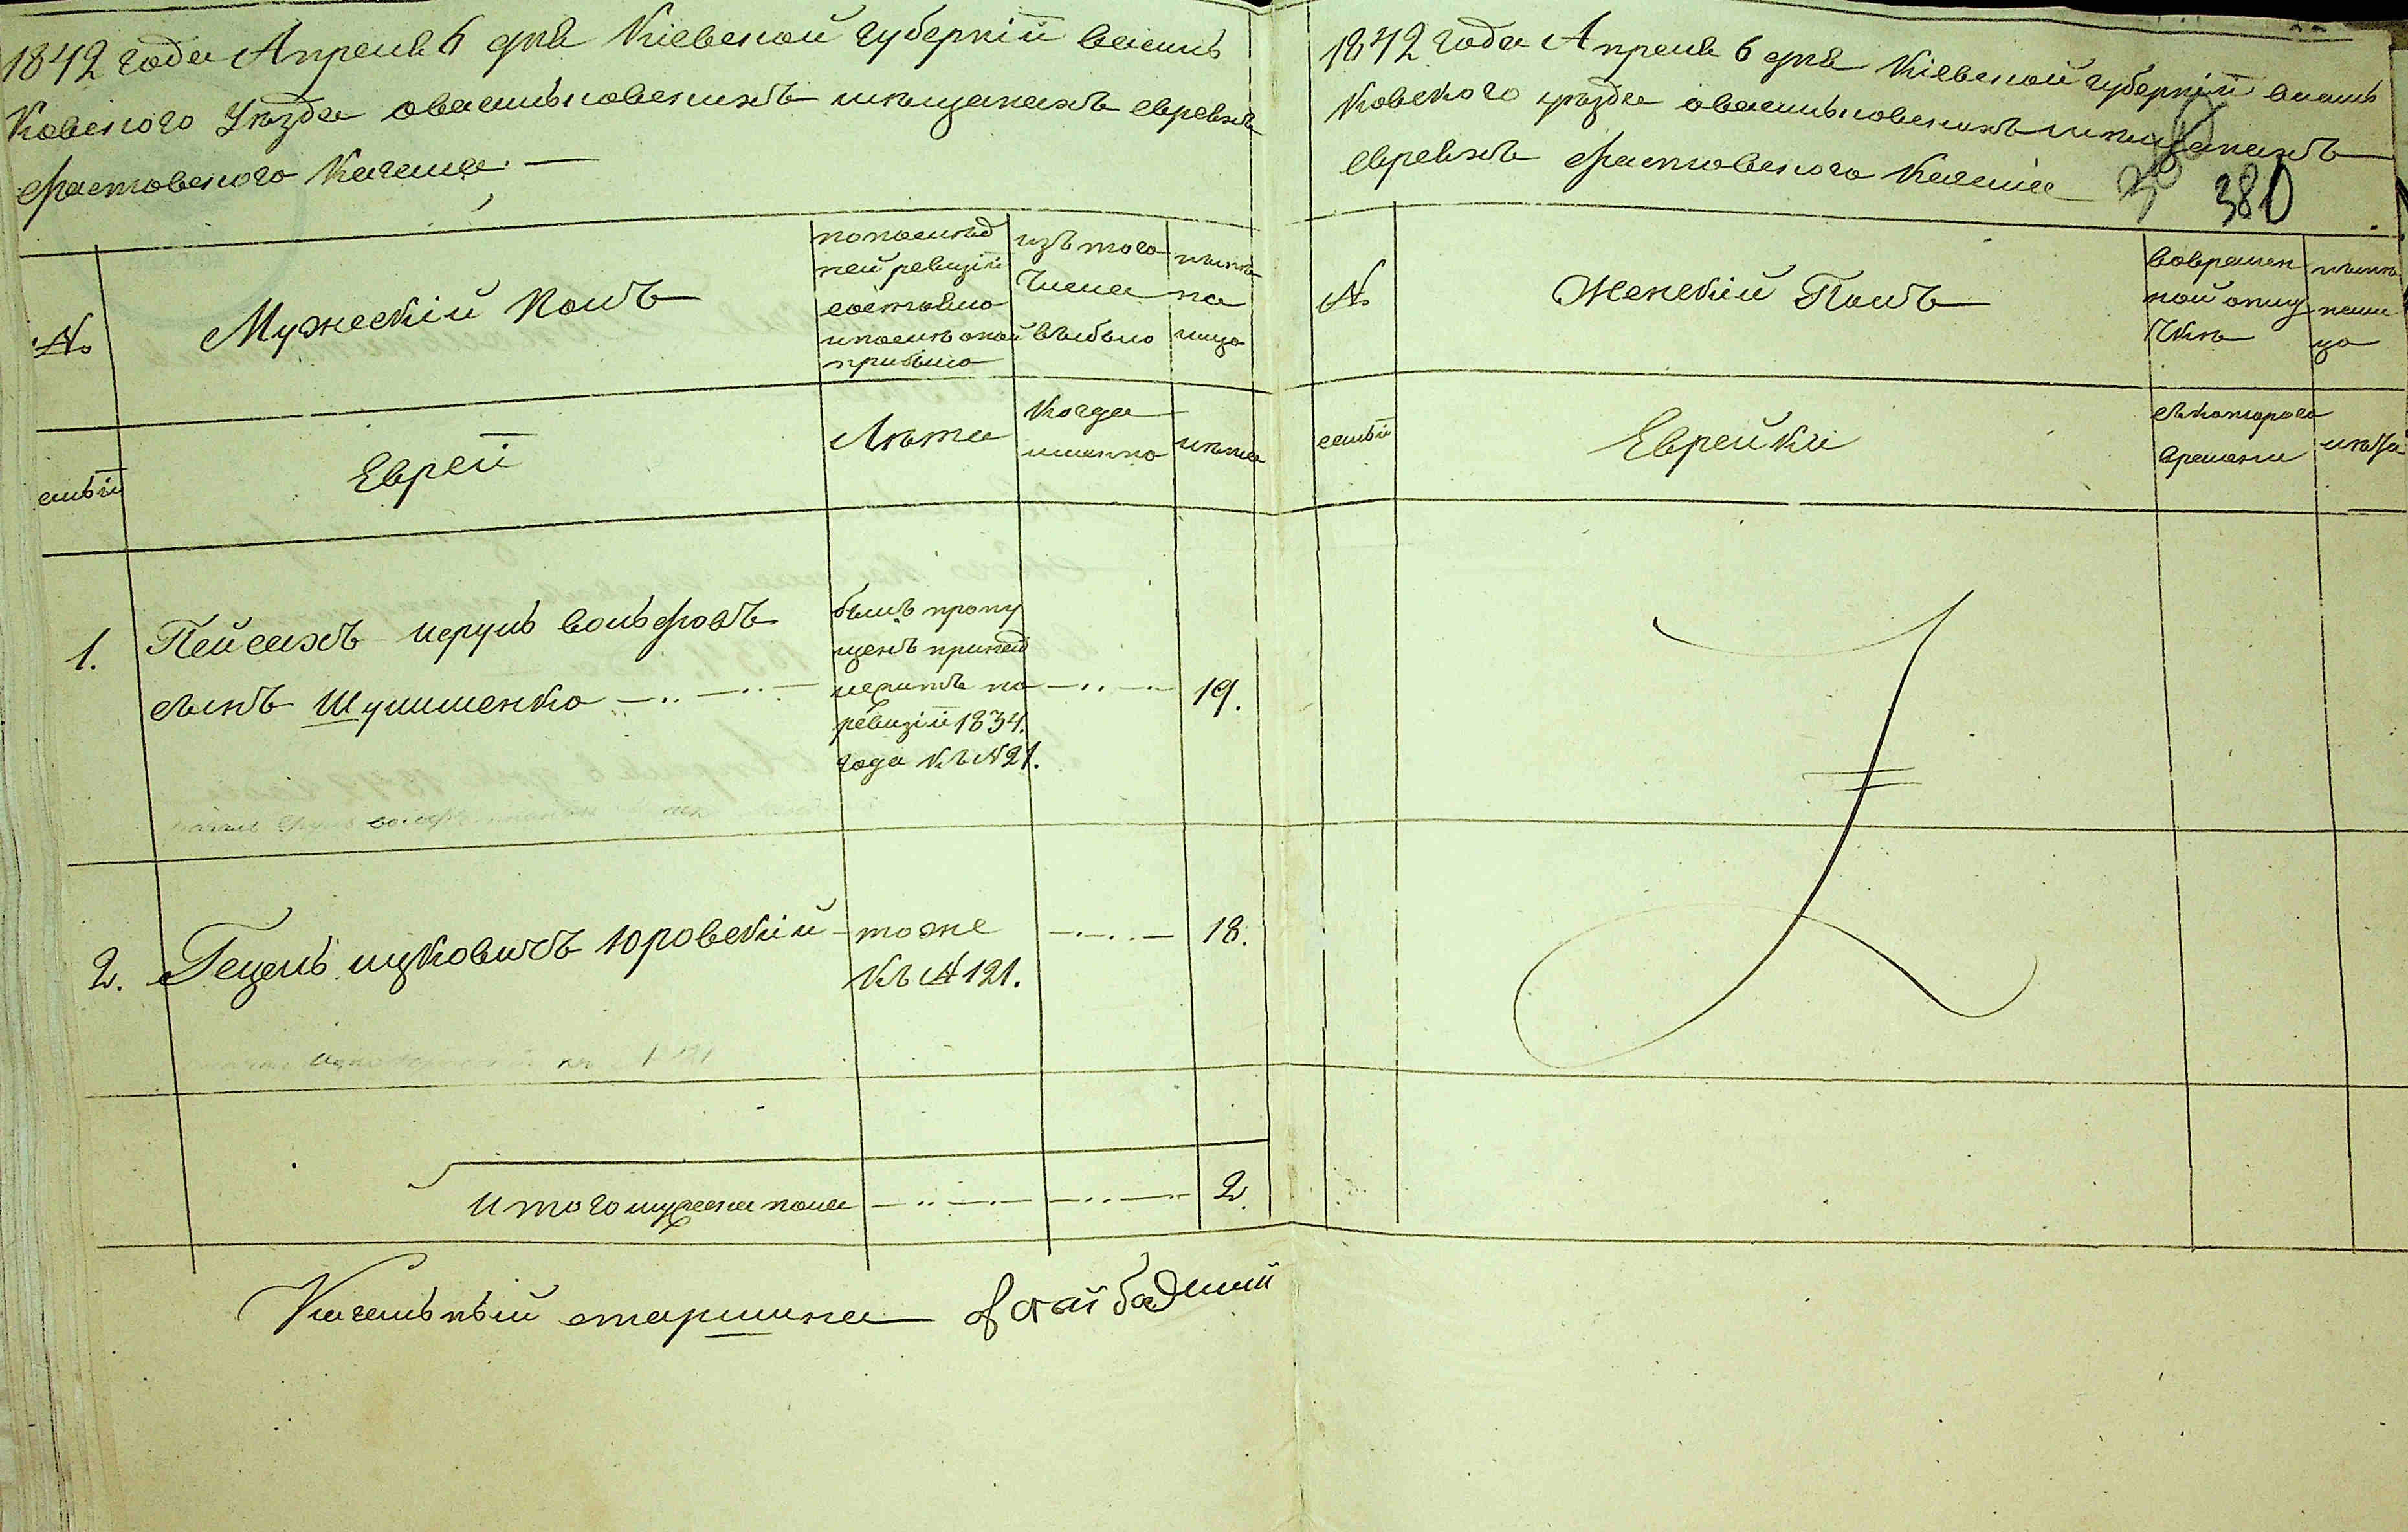 1842 года Апреля 6 дня Кіевской губерніи василь
ковского уѣзда овасильковскихъ мѣщанахъ евреяхъ
фастовского Кагала
№
Мужескій полъ
попослѣд
ней ревизіи
состояло
ипослѣ оной
прибыло
изъ того
Числа
выбыло
нынѣ
на
лицо
семьи
Евреи
Лѣта
Когда
именно
лѣта
1.
Пейсахъ Иерулъ вольфовъ
сынъ Шулименко
былъ пропу
щенъ принад
лежитъ по
ревизіи 1834.
года къ №21.
19.
2.
Гецель ицковичъ Юровскій
тоже
къ № 121.
18.
Итого мужеска пола
2.
Кагальный старшина
1842 года Апреля 6 дня Кіевской губерніи василь
ковского уѣзда овасильковскихъ мѣщанахъ
евреяхъ фастовского Кагала
380
№
Женскій Полъ
вовремен
ной отлу
чкѣ
нынѣ
нали
цо
семьи
Еврейки
съкоторого
времени
лѣта